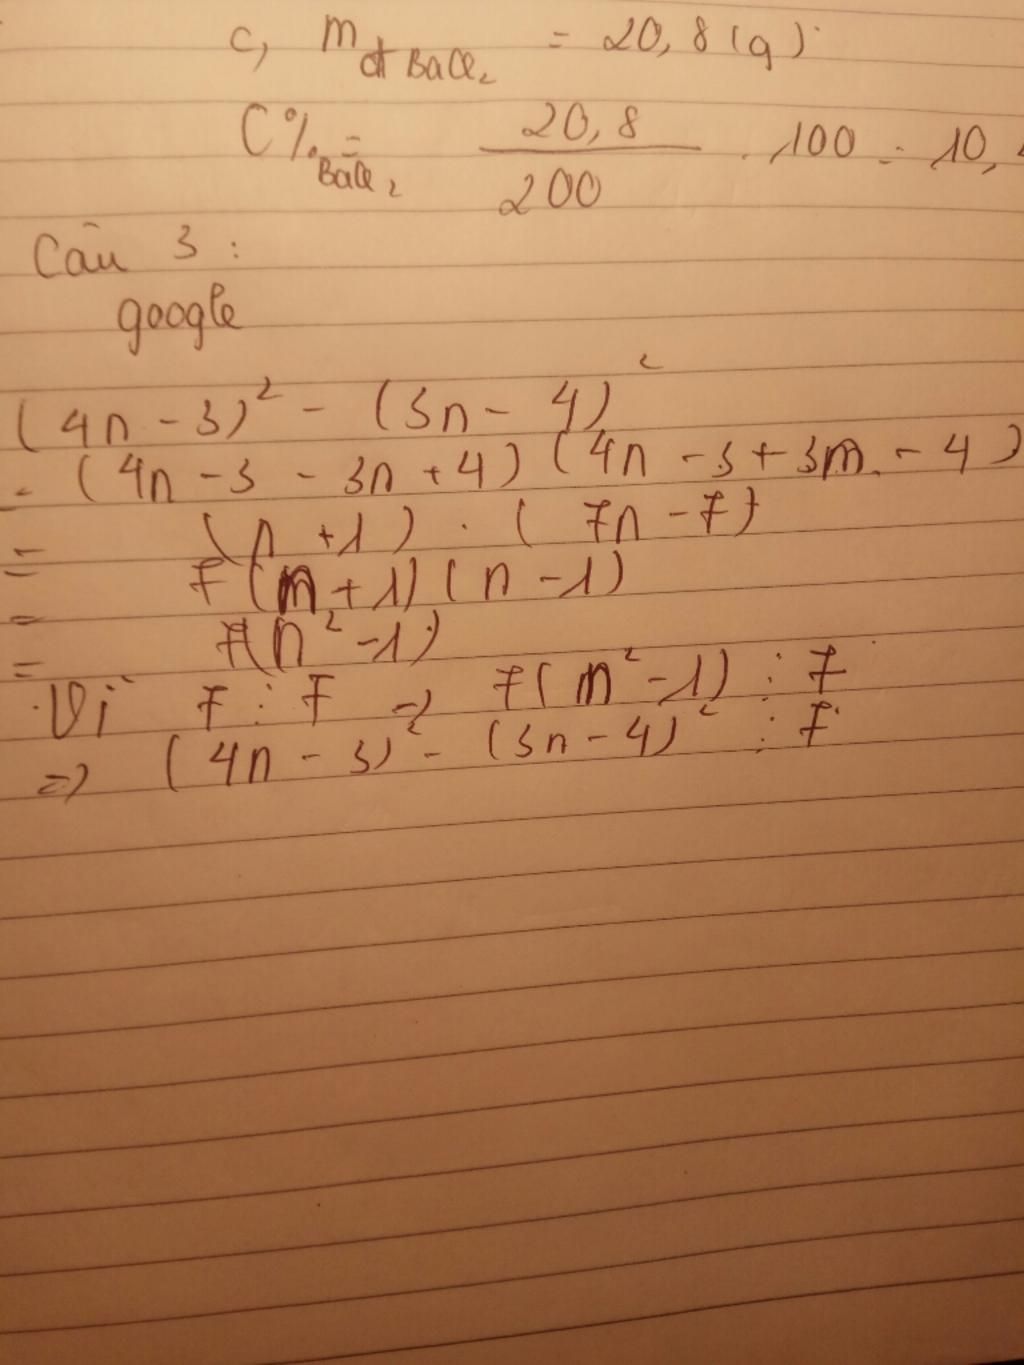 c, m ct BaCl₂ = 20,8 (g)
C% BaCl₂ = 20,8 / 200 . 100 = 10,
Câu 3 :
google
(4n - 3)² - (3n - 4)²
= (4n - 3 - 3n + 4) (4n - 3 + 3n - 4)
= (n + 1) . (7n - 7)
= 7 (n + 1) (n - 1)
= 7(n² - 1)
Vì 7 ⋮ 7 => 7(n² - 1) ⋮ 7
=> (4n - 3)² - (3n - 4)² ⋮ 7